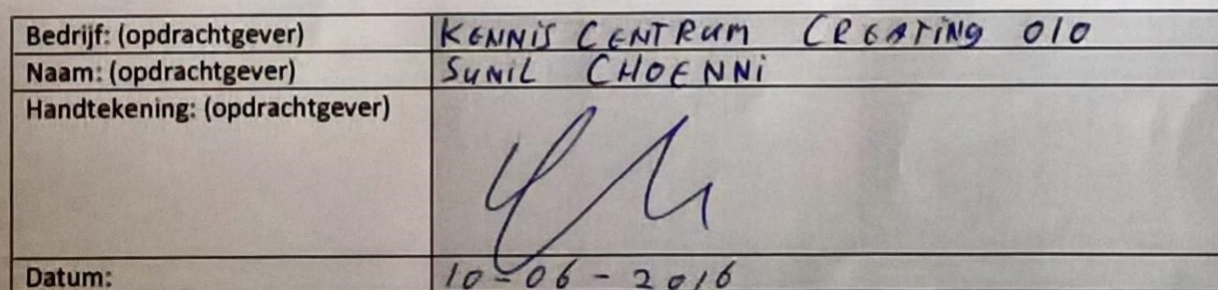 Bedrijf: (opdrachtgever) KENNIS CENTRUM CREATING 010
Naam: (opdrachtgever) SUNIL CHOENNI
Handtekening: (opdrachtgever)
Datum: 10-06-2016